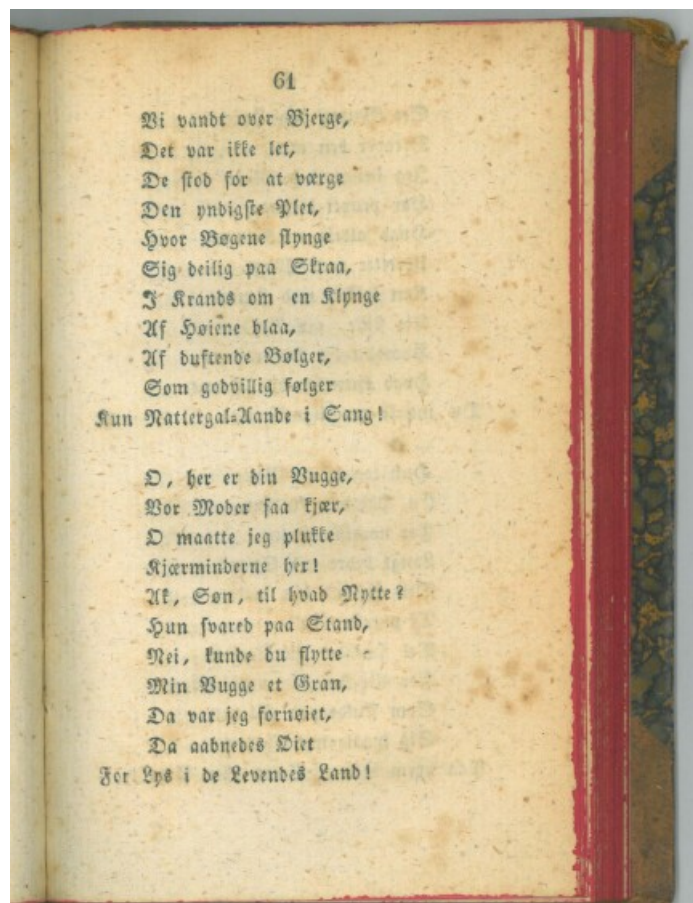 61
Vi vandt over Bjerge,
Det var ikke let,
De stod for at værge
Den yndigste Plet,
Hvor Bøgene slynge
Sig deilig paa Skraa,
I Krands om en Klynge
Af Høiene blaa,
Af duftende Bølger,
Som godvillig følger
Kun Nattergal-Aande i Sang!
O, her er din Vugge,
Vor Moder saa kjær,
O maatte jeg plukke
Kjærminderne her!
Ak, Søn, til hvad Nytte?
Hun svared paa Stand,
Nei, kunde du flytte
Min Vugge et Gran,
Da var jeg fornøiet,
Da aabnedes Øiet
For Lys i de Levendes Land!